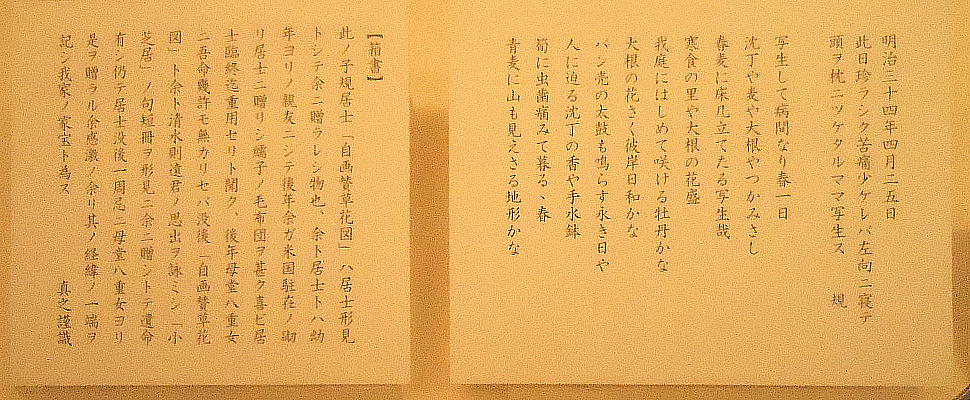 明治三十四年四月二五日
此日珍ラシク苦痛少ケレバ左向ニ寝テ
頭ヲ枕ニツケタルママ写生ス　規
写生して病間なり春一日
沈丁や麦や大根やつかみさし
春麦に床几立てたる写生哉
寒食の里や大根の花盛
我庭にはしめて咲ける牡丹かな
大根の花さく彼岸日和かな
パン売の太鼓も鳴らす永き日や
人に迫る沈丁の香や手水鉢
筍に虫歯痛みて暮るゝ春
青麦に山も見えさる地形かな
【箱書】
此ノ子規居士「自画賛草花図」ハ居士形見
トシテ余ニ贈ラレシ物也、余ト居士トハ幼
年ヨリノ親友ニシテ後年余ガ米国駐在ノ砌
リ居士ニ贈リシ繻子ノ毛布団ヲ甚ク喜ビ居
士臨終迄重用セリト聞ク、後年母堂八重女
ニ吾命幾許モ無カリセバ没後「自画賛草花
図」ト余ト清水則遠君ノ思出ヲ詠ミシ「小
芝居」ノ句短冊ヲ形見ニ余ニ贈シトテ遺命
有シ仍テ居士没後一周忌ニ母堂八重女ヨリ
是ヲ贈ラル余感激ノ余リ其ノ経緯ノ一端ヲ
記シ我家ノ家宝ト為ス　真之謹識